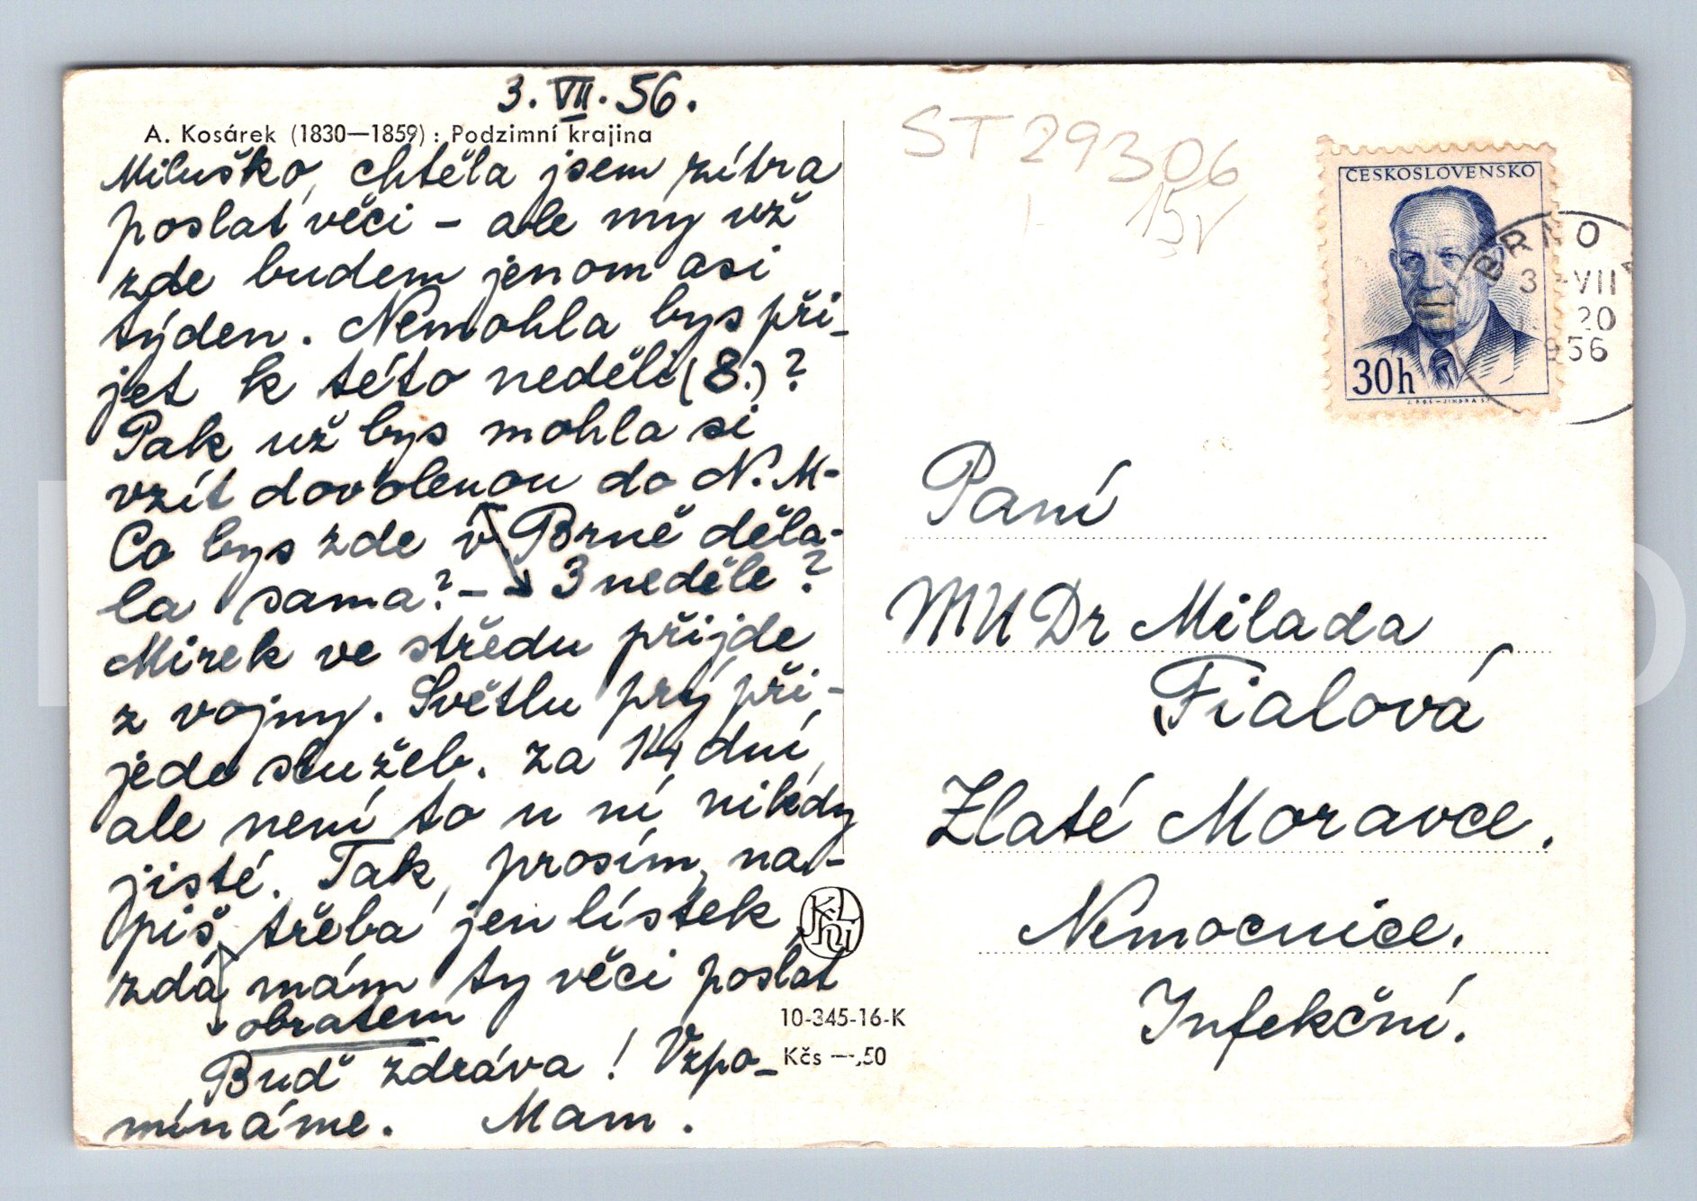 3. VII. 56.
A. Kosárek (1830—1859) : Podzimní krajina
Miluško, chtěla jsem zítra
poslat věci - ale my už
zde budem jenom asi
týden. Nemohla bys při-
jet k této neděli (8.)?
Pak už bys mohla si
vzít dovolenou do N. M.
Co bys zde v Brně děla-
la sama? - 3 neděle?
Mirek ve středu přijde
z vojny. Světlu prý při-
jede služeb. za 14 dní,
ale není to u ní nikdy
jisté. Tak, prosím, na-
piš třeba jen lístek,
zda mám ty věci poslat
obratem
Buď zdráva! Vzpo-
mínáme. Mam.
10-345-16-K
Kčs —,50
ST 29306
15,-
ČESKOSLOVENSKO
30h
BRNO
3.-VII
20
956
Paní
MUDr Milada
Fialová
Zlaté Moravce.
Nemocnice.
Infekční.